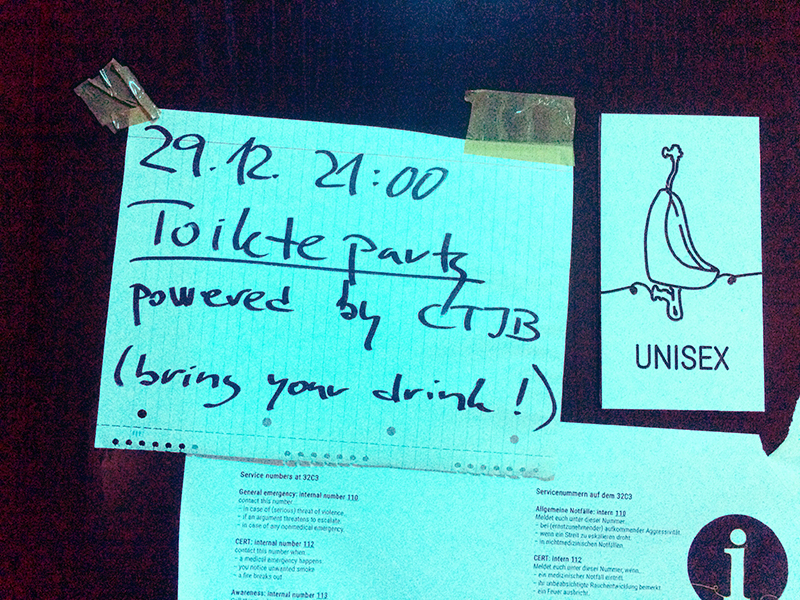 29.12. 21:00
Toilete party
powered by CTJB
(bring your drink!)
UNISEX
Service numbers at 32C3
General emergency: internal number 110
contact this number...
– in case of (serious) threat of violence.
– if an argument threatens to escalate.
– in case of any nonmedical emergency.
CERT: internal number 112
contact this number when...
– a medical emergency happens
– you notice unwanted smoke
– a fire breaks out
Awareness: internal number 113
Servicenummern auf dem 32C3
Allgemeine Notfälle: intern 110
Meldet euch unter dieser Nummer...
– bei (ernstzunehmender) aufkommender Aggressivität.
– wenn ein Streit zu eskalieren droht.
– in nichtmedizinischen Notfällen.
CERT: intern 112
Meldet euch unter dieser Nummer, wenn...
– ein medizinischer Notfall eintritt.
– ihr unbeabsichtigte Rauchentwicklung bemerkt
– ein Feuer ausbricht.
i